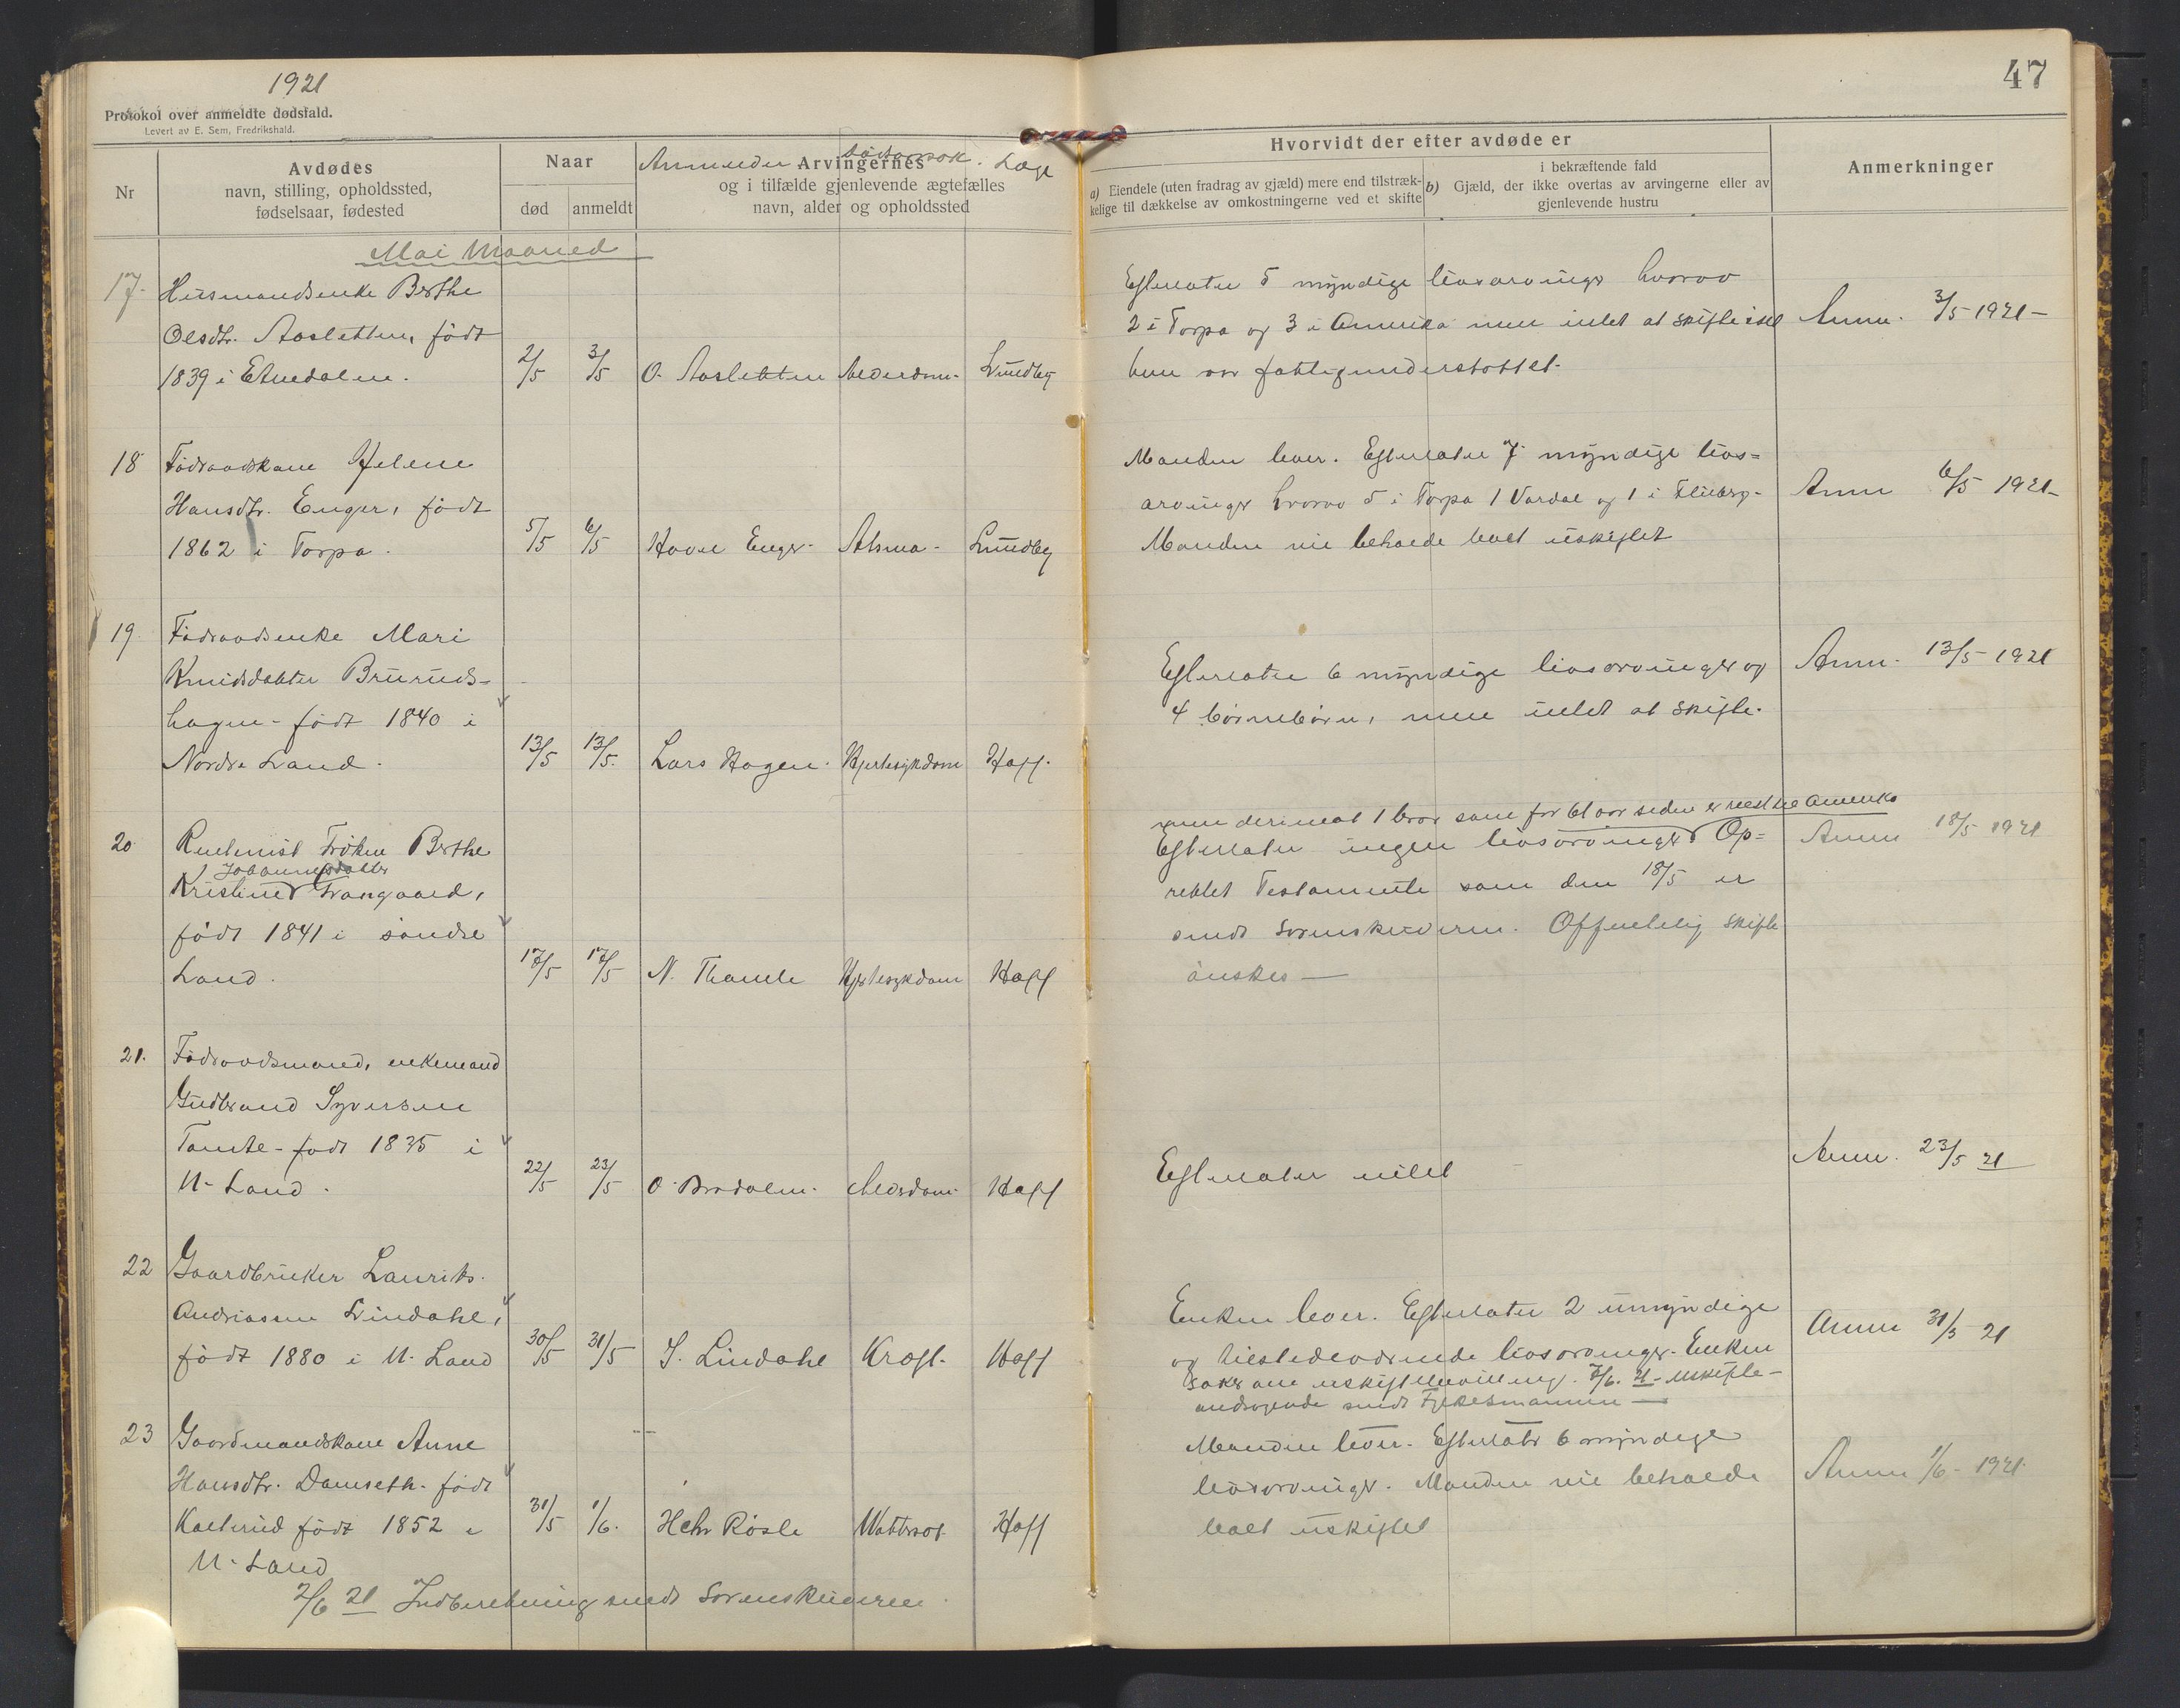 1921
Protokol over anmeldte dødsfald.
Levert av E. Sem, Fredrikshald.
47
Nr
Avdødes
navn, stilling, opholdssted,
fødselsaar, fødested
Naar
død
anmeldt
Anmelder
Dødsaarsak.
Læge
Arvingernes
og i tilfælde gjenlevende ægtefælles
navn, alder og opholdssted
Hvorvidt der efter avdøde er
a) Eiendele (uten fradrag av gjæld) mere end tilstræk-
kelige til dækkelse av omkostningerne ved et skifte
i bekræftende fald
b) Gjæld, der ikke overtas av arvingerne eller av
gjenlevende hustru
Anmerkninger
Mai Maaned
17.
Husmandsenke Berthe
Olsdtr. Aasletten, født
1839 i Etnedalen.
2/5 3/5 O. Aasletten Alderdom. Lundby
Efterlater 5 myndige livsarvinger hvorav
2 i Torpa og 3 i Amerika men intet at skifte idet
hun var fattigunderstøttet.
Anm. 3/5 1921 –
18
Føderaadskone Helene
Hansdtr. Enger, født
1862 i Torpa.
5/5 6/5 Hovel Enger. Astma. Lundby
Manden lever. Efterlater 7 myndige livs=
arvinger hvorav 5 i Torpa 1 Vardal og 1 i
Manden vil beholde boet uskiftet
Anm 6/5 1921 –
19.
Føderaadsenke Mari
Knudsdatter Bruruds-
hagen – født 1840 i
Nordre Land.
13/5 13/5. Lars Hagen. Hjertesykdom Hoff.
Efterlater 6 myndige livsarvinger og
4 børnebørn, men intet at skifte.
Anm. 13/5 1921
20
Rentenist Frøken Berthe
Johannesdatter
Kristine Frangaard,
født 1841 i søndre
Land.
17/5 17/5 N. Thomle Hjertesykdom Hoff
men derimot 1 bror som for 61 aar siden er reist til Amerika
Efterlater ingen livsarvinger Op=
rettet Testamente som den 18/5 er
sendt sorenskriveren. Offentlig skifte
ønskes —
Anm 18/5 1921
21.
Føderaadsmand, enkemand
Gudbrand Syversen
Tomte – født 1835 i
N. Land.
22/5 23/5 O. Brodalen. Alderdom. Hoff
Efterlater intet
Anm. 23/5 21
22
Gaardbruker Laurits
Andreassen Lindahl,
født 1880 i N. Land
30/5 31/5 S. Lindahl Kræft. Hoff
Enken lever. Efterlater 2 umyndige
og tilstedeværende livsarvinger. Enken
søker om uskiftebevilling. 7/6. 21 – uskifte –
andragende sendt Fylkesmannen —
Anm 31/5 21
23
Gaardmandskone Anne
Hansdtr. Damseth. født
Kolterud født 1852 i
N. Land
31/5 1/6. Hchr Røsle Vattersot Hoff
Manden lever. Efterlater 6 myndige
livsarvinger. Manden vil beholde
boet uskiftet
Anm 1/6 – 1921.
2/6 21 Indberetning sendt Sorenskriveren.